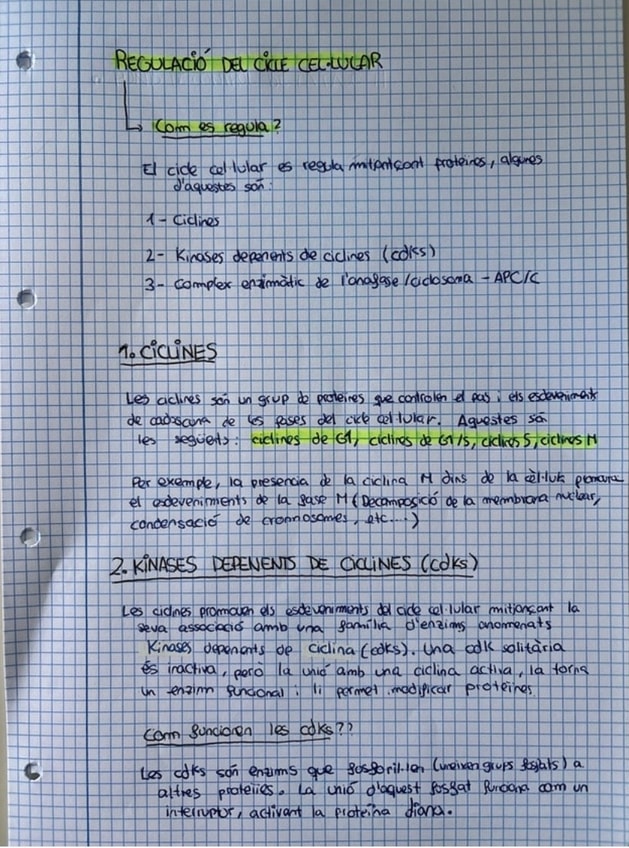 REGULACIÓ DEL CICLE CEL·LULAR
Com es regula?
El cicle cel·lular es regula mitantçant proteines, algunes
d'aquestes són:
1- Ciclines
2- Kinases depenents de ciclines (cdks)
3- Complex enzimàtic de l'anafase/ciclosoma - APC/C
1. CICLINES
Les ciclines són un grup de proteïnes que controlen el pas i els esdeveniments
de cadascuna de les fases del cicle cel·lular. Aquestes són
les següets: ciclines de G1, ciclines de G1/S, ciclines S, ciclines M
Per exemple, la presencia de la ciclina M dins de la cèl·lula promoure
el esdeveniments de la fase M (Decomposició de la membrana nuclear,
condensació de cromosomes, etc...)
2. KINASES DEPENENTS DE CICLINES (cdks)
Les ciclines promouen els esdeveniments del cicle cel·lular mitjançant la
seva associació amb una família d'enzims anomenats
Kinases depenents de ciclina (cdks). Una cdk solitària
és inactiva, però la unió amb una ciclina activa, la torna
un enzim funcional i li permet modificar proteïnes
Com funcionen les cdks??
Les cdks són enzims que fosforil·len (uneixen grups fosfats) a
altres proteïnes. La unió d'aquest fosfat funciona com un
interruptor, activant la proteïna diana.